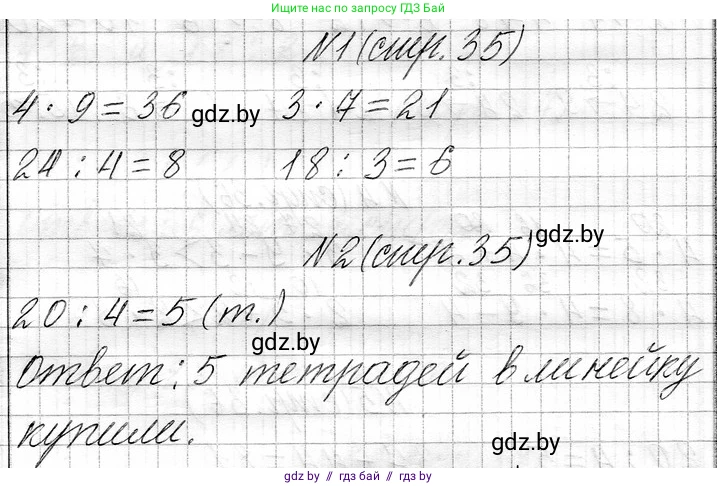 Ищите нас по запросу ГДЗ Бай
N1 (стр. 35)
4 · 9 = 36 gdz.by 3 · 7 = 21
24 : 4 = 8 18 : 3 = 6
N2 (стр. 35) gdz.by
20 : 4 = 5 (т.)
gdz.by
Ответ: 5 тетрадей в линейку
купили.
gdz.by
gdz.by // гдз.бай // gdz.by